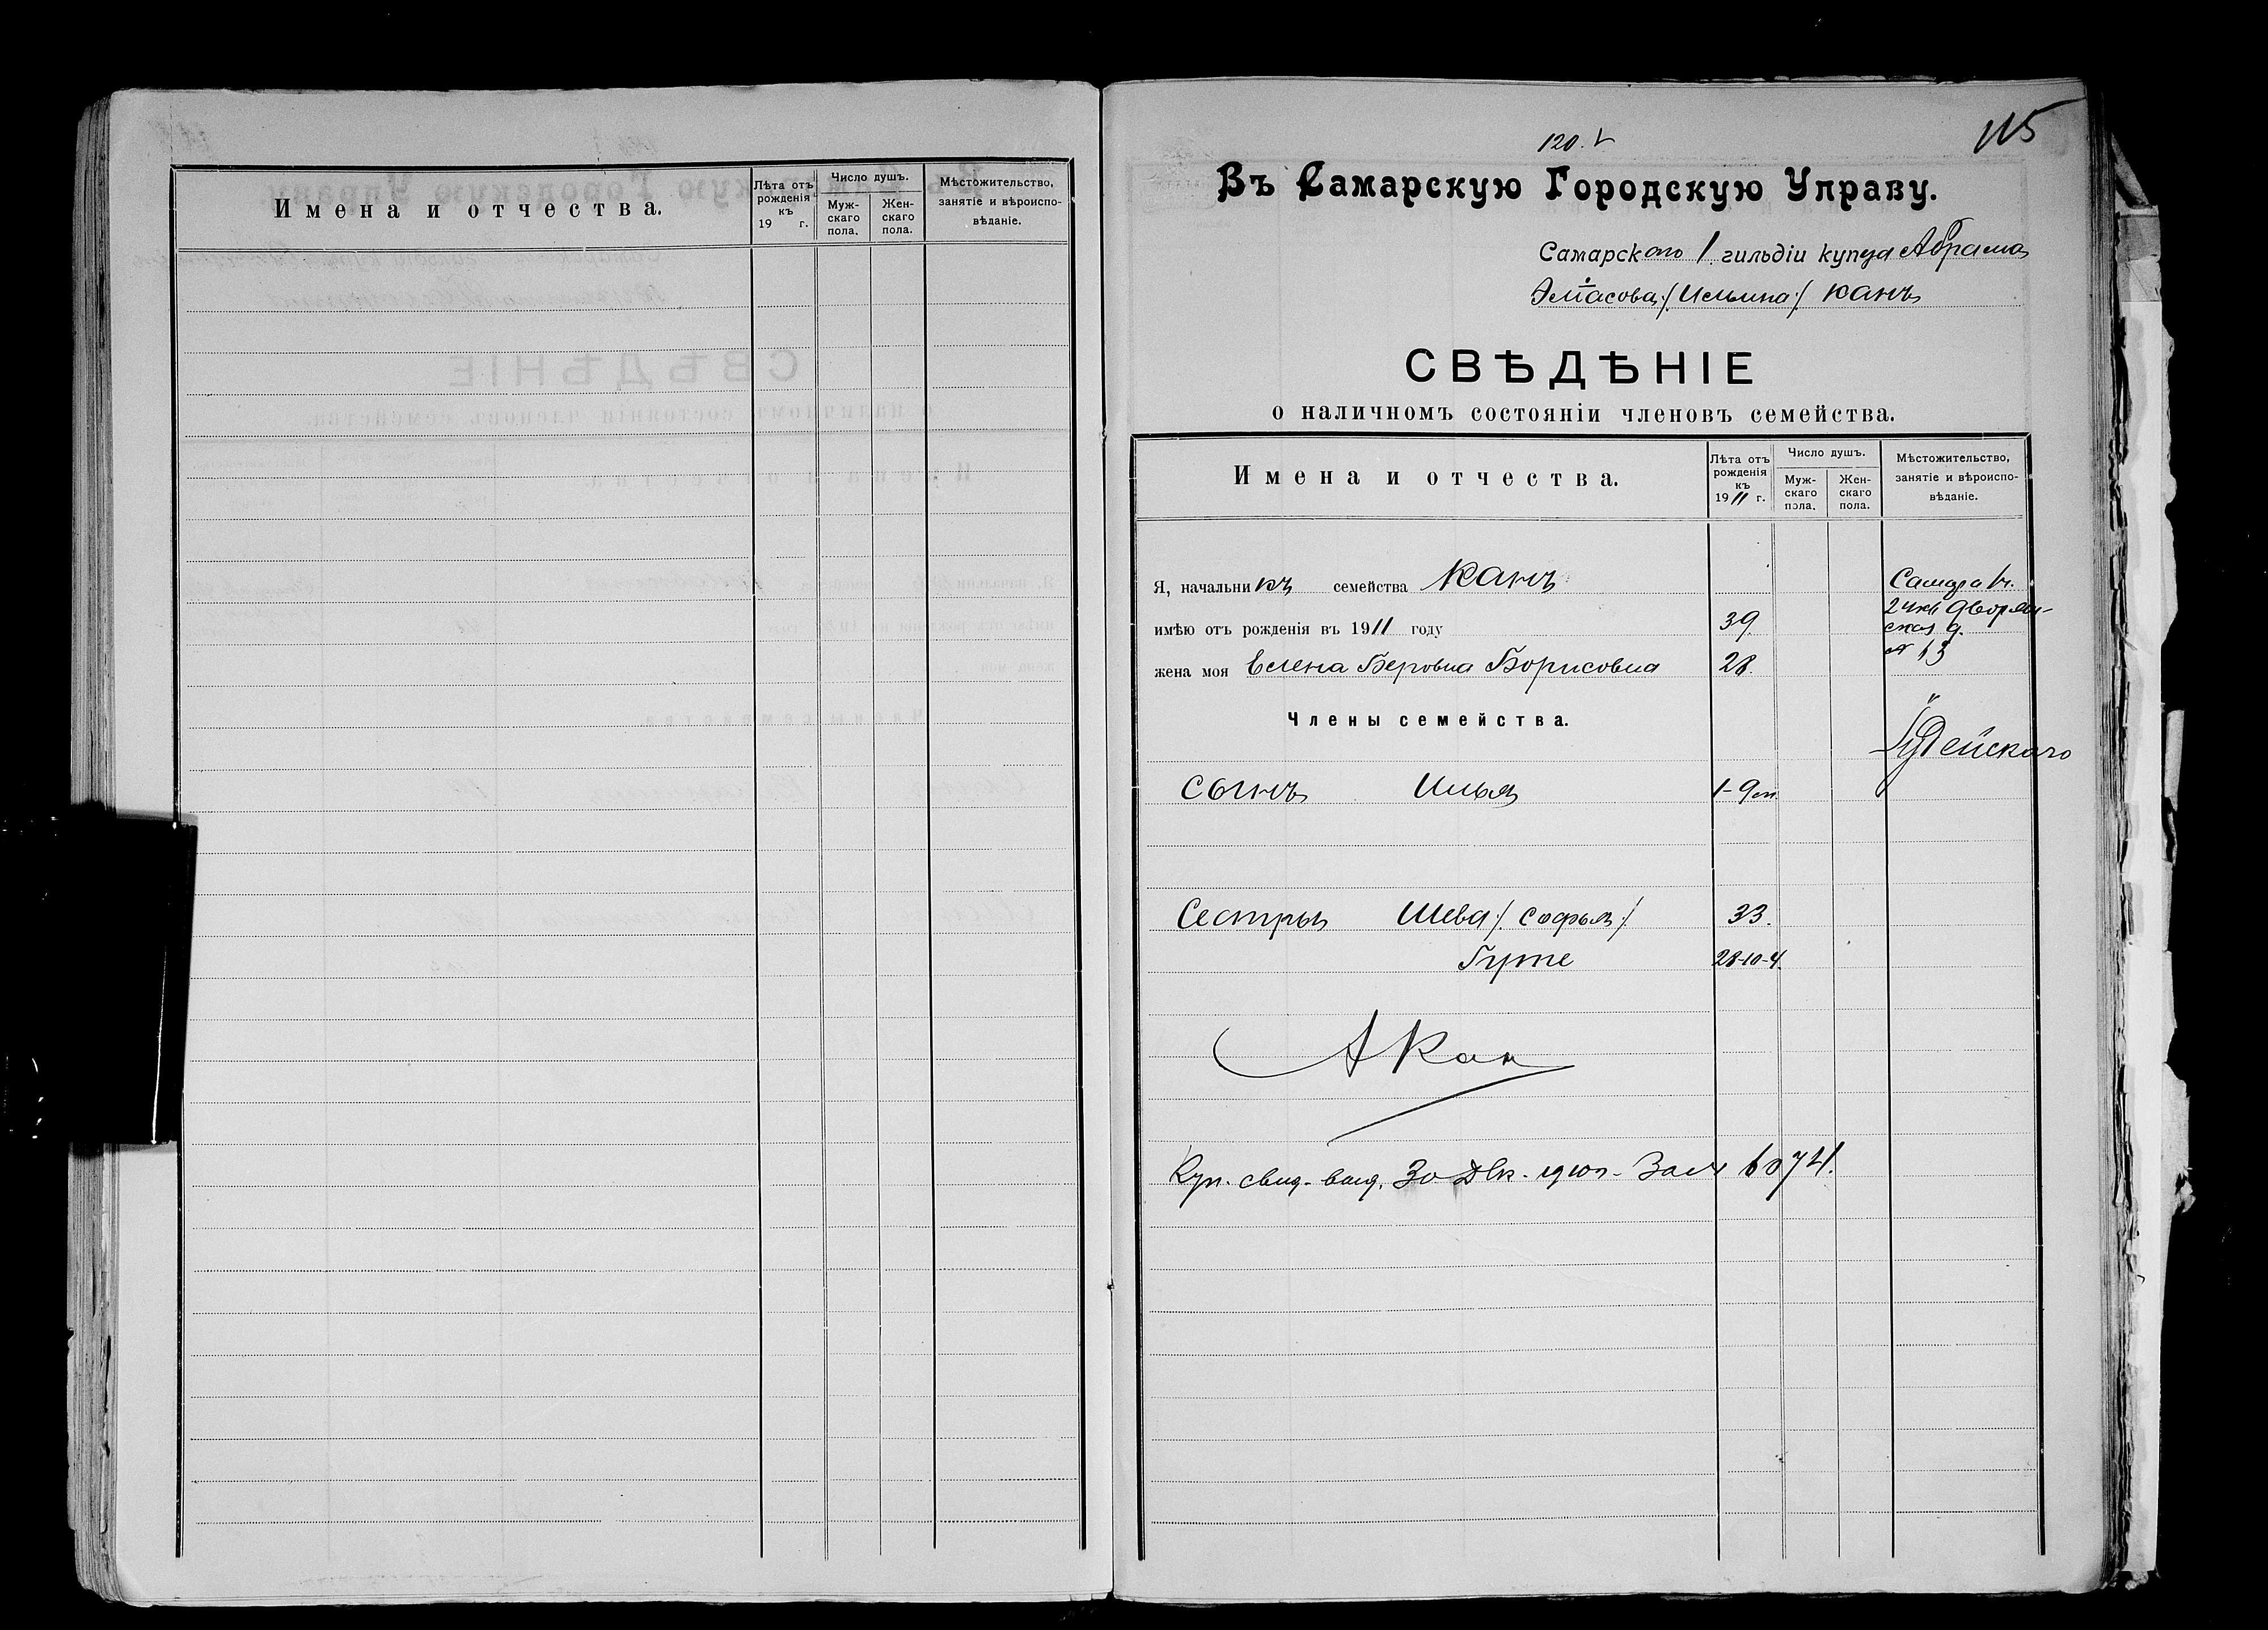 Имена и отчества.
Лѣта отъ
рожденія
къ
19 г.
Число душъ.
Муж-
скаго
пола.
Жен-
скаго
пола.
Мѣстожительство,
занятіе и вѣроиспо-
вѣданіе.
120.
115
Въ Самарскую Городскую Управу.
Самарского 1 гильдіи купца Абрама
/Ильина/ Канъ
СВѢДѢНІЕ
о наличномъ состояніи членовъ семейства.
Имена и отчества.
Лѣта отъ
рожденія
къ
1911 г.
Число душъ.
Муж-
скаго
пола.
Жен-
скаго
пола.
Мѣстожительство,
занятіе и вѣроиспо-
вѣданіе.
Я, начальникъ семейства Канъ
Самара 1 ч.
2 Дворян-
ская д.
№ 13
имѣю отъ рожденія въ 1911 году 39
жена моя Елена Беровна Борисовна 28.
Члены семейства.
Іудейскаго
Сынъ Илья 1-9 м.
Сестры Шева /Софья/ 33.
Гуте 28-10-4.
А Кан
Куп. свид. выд. 30 Дек. 1910 г. за № 10741.